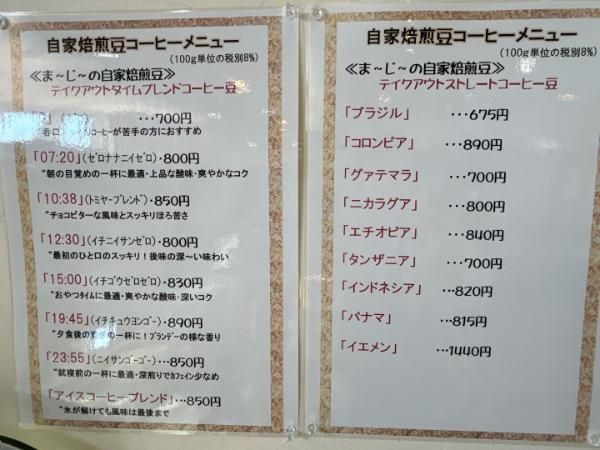 自家焙煎豆コーヒーメニュー
(100g単位の税別8%)
≪ま～じ～の自家焙煎豆≫
テイクアウトタイムブレンドコーヒー豆
･･･700円
コーヒーが苦手の方におすすめ
「07:20」(ゼロナナニイゼロ)･800円
"朝の目覚めの一杯に最適･上品な酸味･爽やかなコク
「10:38」(トミヤーブレンド)･850円
"チョコビターな風味とスッキリほろ苦さ
「12:30」(イチニイサンゼロ)･800円
"最初のひと口のスッキリ！後味の深～い味わい
「15:00」(イチゴウゼロゼロ)･830円
"おやつタイムに最適･爽やかな酸味･深いコク
「19:45」(イチキュウヨンゴー)･890円
"夕食後の 一杯に！ブランデーの様な香り
「23:55」(ニイサンゴーゴー)･･･850円
"就寝前の一杯に最適･深煎りでカフェイン少なめ
「アイスコーヒーブレンド」･･･850円
"氷が解けても風味は最後まで
自家焙煎豆コーヒーメニュー
(100g単位の税別8%)
≪ま～じ～の自家焙煎豆≫
テイクアウトストレートコーヒー豆
「ブラジル」 ･･･675円
「コロンビア」 ･･･890円
「グァテマラ」 ･･･700円
「ニカラグア」 ･･･800円
「エチオピア」 ･･･840円
「タンザニア」 ･･･700円
「インドネシア」 ･･･820円
「パナマ」 ･･･815円
「イエメン」 ･･･1440円